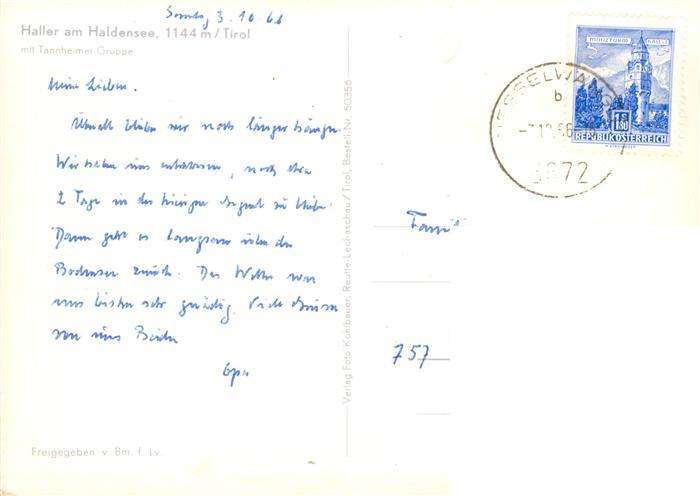 3. 10. 66
Haller am Haldensee, 1144 m / Tirol
mit Tannheimer Gruppe
MÜNZTURM HALL i. T.
S 1.80
REPUBLIK ÖSTERREICH
NESSELWÄNGLE
b
-7.10.66
6672
Meine Lieben.
Überall bleiben wir noch länger hängen.
Wir haben uns entschlossen, noch etwa
2 Tage in der hiesigen Gegend zu bleiben.
Dann geht es langsam über den
Bodensee zurück. Das Wetter war
uns bisher sehr gnädig. Viele Grüsse
von uns Beiden
Opa
Verlag Foto Kohlbauer, Reutte-Lechaschau / Tirol, Bestell-Nr. 50356
Famil
757
Freigegeben v. Bm. f. Lv.